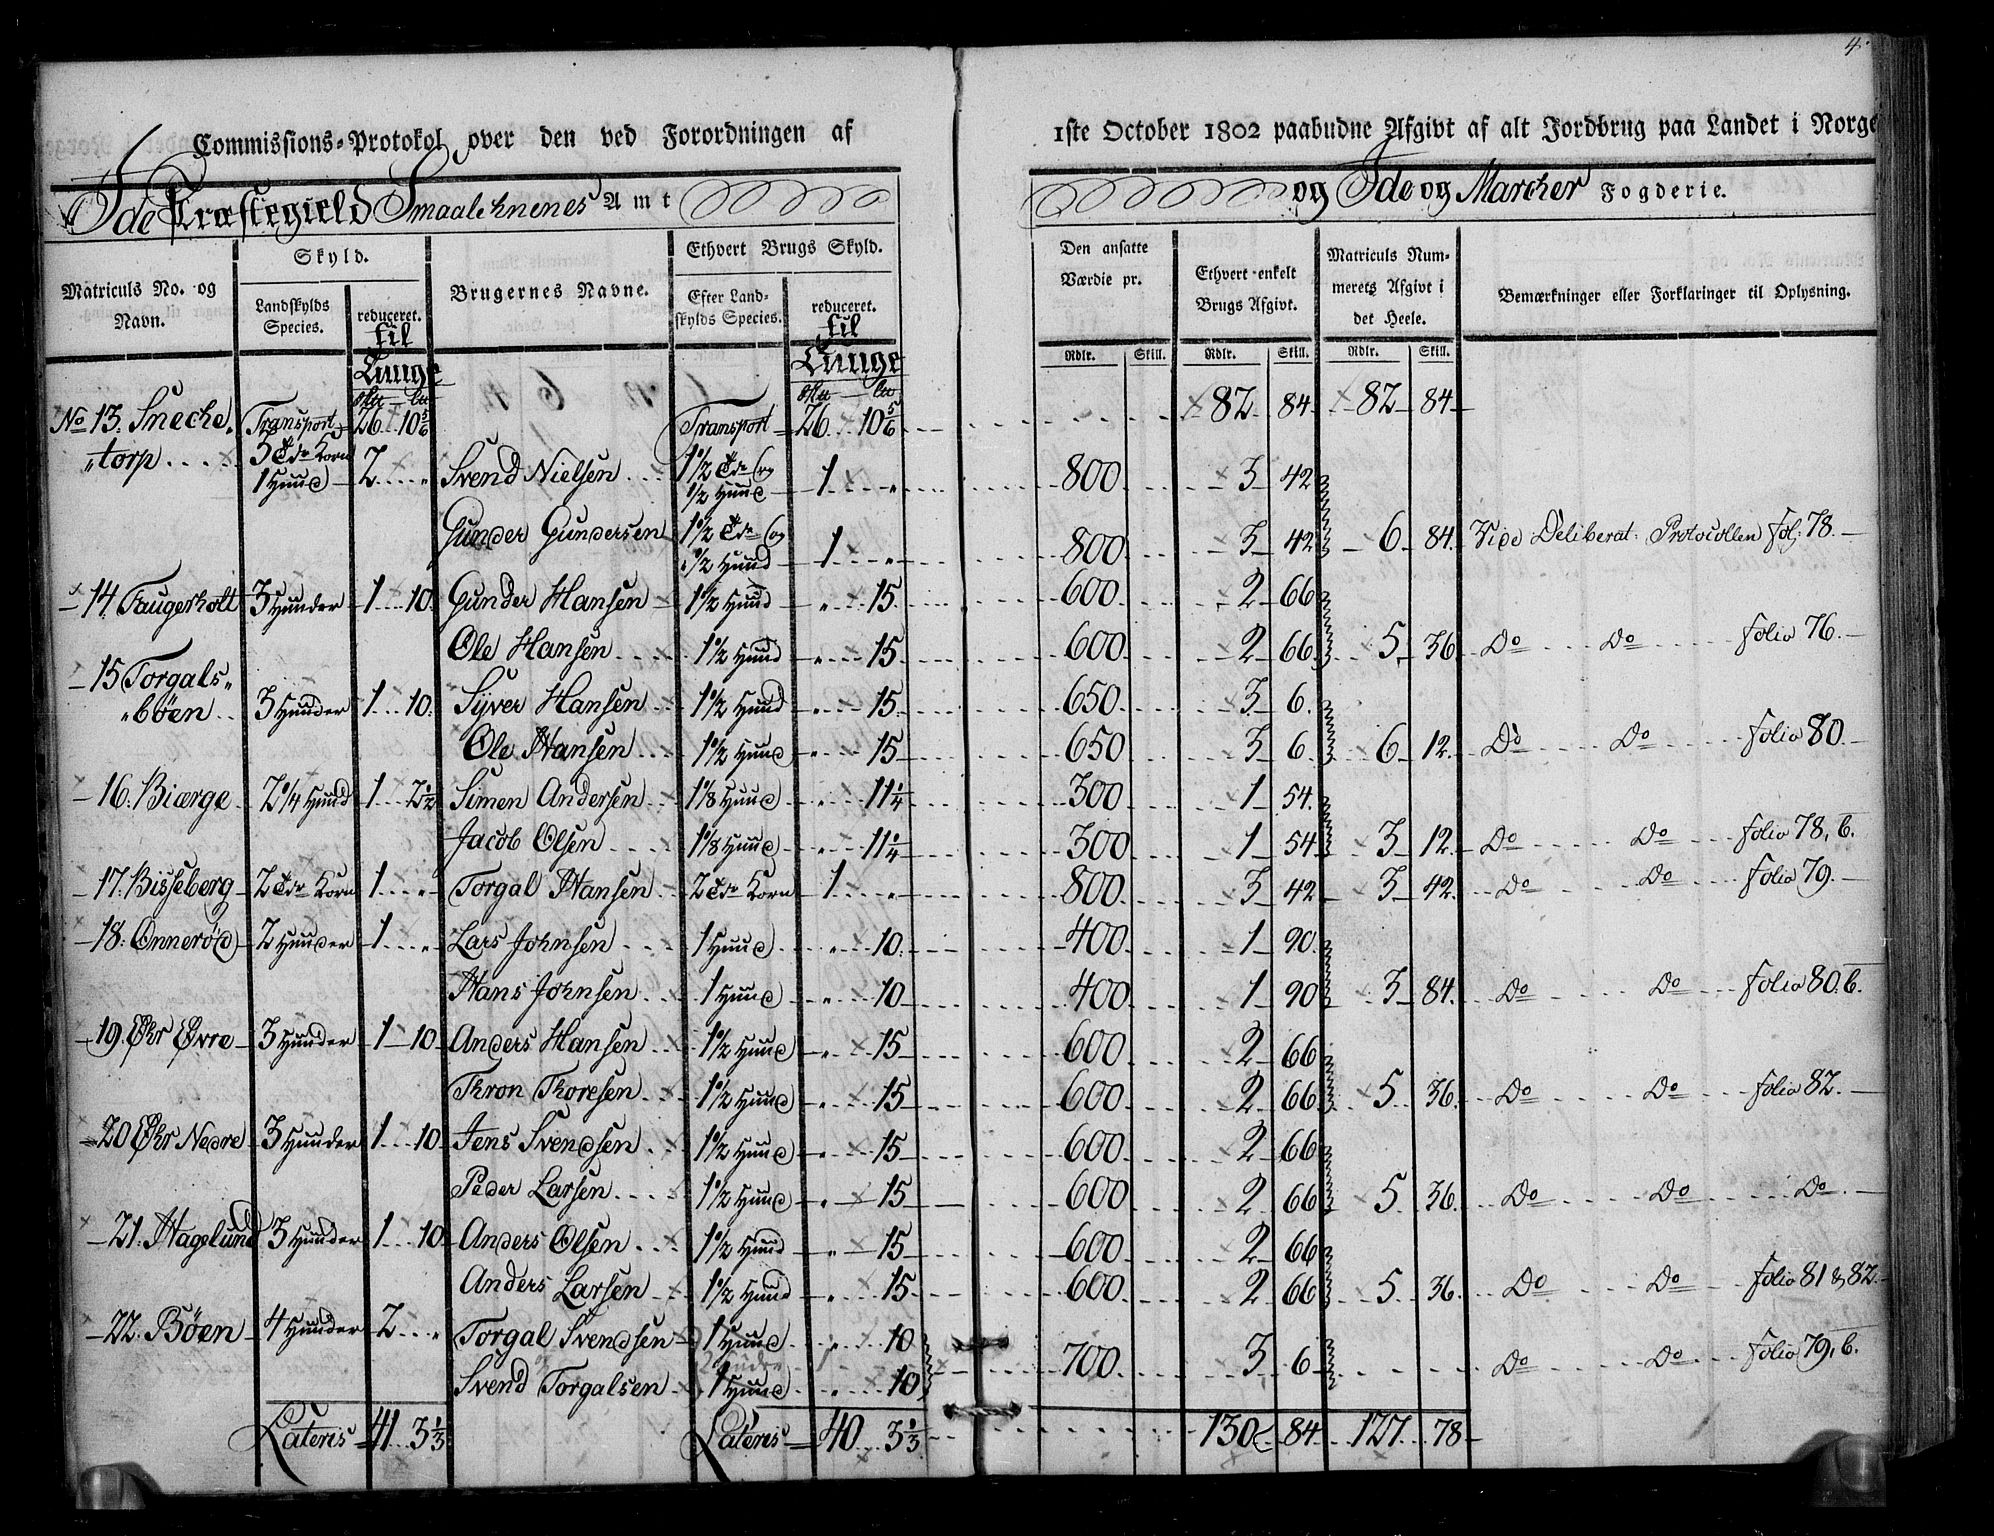 4.
Commissions-Protokol over den ved Forordningen af 1ste October 1802 paabudne Afgivt af alt Jordbrug paa Landet i Norge
Ide Præstegield Smaalehnenes Amt og Ide og Marcher Fogderie.
Matriculs No. og Navn. Skyld. Landskylds Species. reduceret. til Tunge Brugernes Navne. Ethvert Brugs Skyld. Efter Landskylds Species. reduceret. til Tunge
Den ansatte Værdie pr. Ethvert enkelt Brugs Afgivt. Matriculs Nummerets Afgivt i det Heele. Bemærkninger eller Forklaringer til Oplysning.
Rdlr. Skill. Rdlr. Skill. Rdlr. Skill.
Transport 26 10 5/6 Transport 26 10 5/6 82 84 82 84
No 13. Sneche„
„torp 3 Tdr Korn 1 Hund 2 „ Svend Nielsen 1 1/2 Tdr og 1/2 Hund 1 „ 800 3 42
Gunder Gundersen 1 1/2 Tdr og 1/2 Hund 1 „ 800 3 42 6 84 Vide Deliberat: Protocollen fol: 78.
14. Faugerholt 3 Hunder 1 10 Gunder Hansen 1 1/2 Hund „ 15 600 2 66
Ole Hansen 1 1/2 Hund „ 15 600 2 66 5 36 Do Do folio 76.
15 Torgals„
„böen 3 Hunder 1 10 Syver Hansen 1 1/2 Hund „ 15 650 3 6
Ole Hansen 1 1/2 Hund „ 15 650 3 6 6 12 Do Do folio 80.
16. Biærge 2 1/4 Hund 1 2 1/2 Simen Andersen 1 1/8 Hund „ 11 1/4 300 1 54
Jacob Olsen 1 1/8 Hund „ 11 1/4 300 1 54 3 12 Do Do folio 78, b.
17. Bisseberg 2 Tdr Korn 1 „ Torgal Hansen 2 Tdr Korn 1 „ 800 3 42 3 42 Do Do folio 79.
18. Onneröd 2 Hunder 1 „ Lars Johnsen 1 Hund „ 10 400 1 90
Hans Johnsen 1 Hund „ 10 400 1 90 3 84 Do Do folio 80. b.
19. Øhr Øvre 3 Hunder 1 10 Anders Hansen 1 1/2 Hund „ 15 600 2 66
Thron Thoresen 1 1/2 Hund „ 15 600 2 66 5 36 Do Do folio 82.
20 Øhr Nedre 3 Hunder 1 10 Jens Svendsen 1 1/2 Hund „ 15 600 2 66
Peder Larsen 1 1/2 Hund „ 15 600 2 66 5 36 Do Do Do
21. Hagelund 3 Hunder 1 10 Anders Olsen 1 1/2 Hund „ 15 600 2 66
Anders Larsen 1 1/2 Hund „ 15 600 2 66 5 36 Do Do folio 81 & 82.
22. Böen 4 Hunder 2 „ Torgal Svendsen 1 Hund „ 10
Svend Torgalsen 1 Hund „ 10 700 3 6 Do Do folio 79, b.
Lateris 41 3 1/3 Lateris 40 3 1/3 130 84 127 78